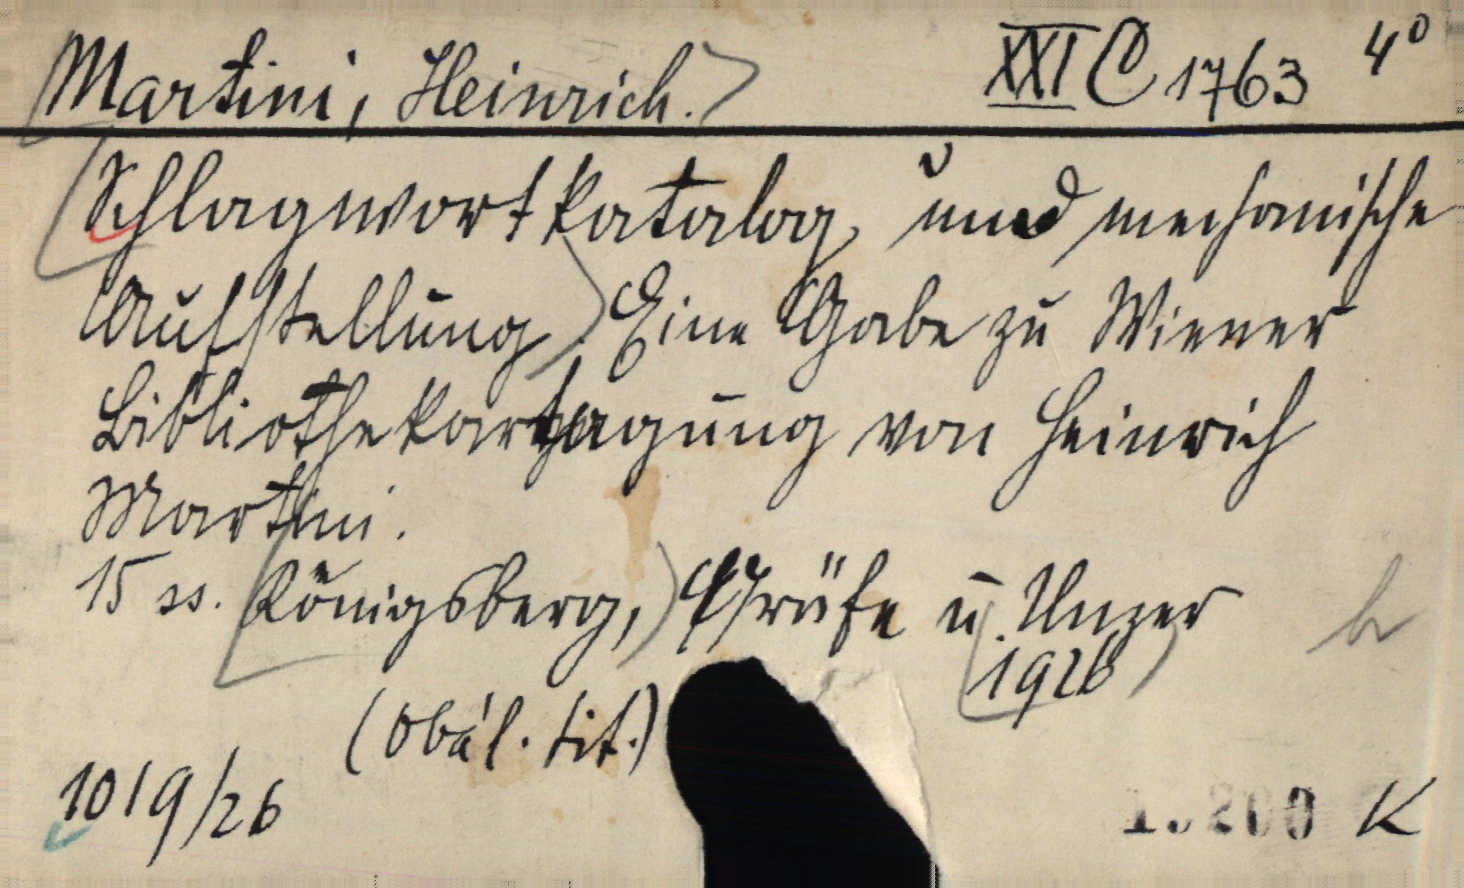 Martini, Heinrich. XXI C 1763 4°
Schlagwortkatalog und mechanische
Aufstellung. Eine Gabe zu Wiener
Bibliothekartagung von Heinrich
Martini.
15 ss. Königsberg, Gräfe u. Unzer
1926
(Obál. tit.)
1019/26
K